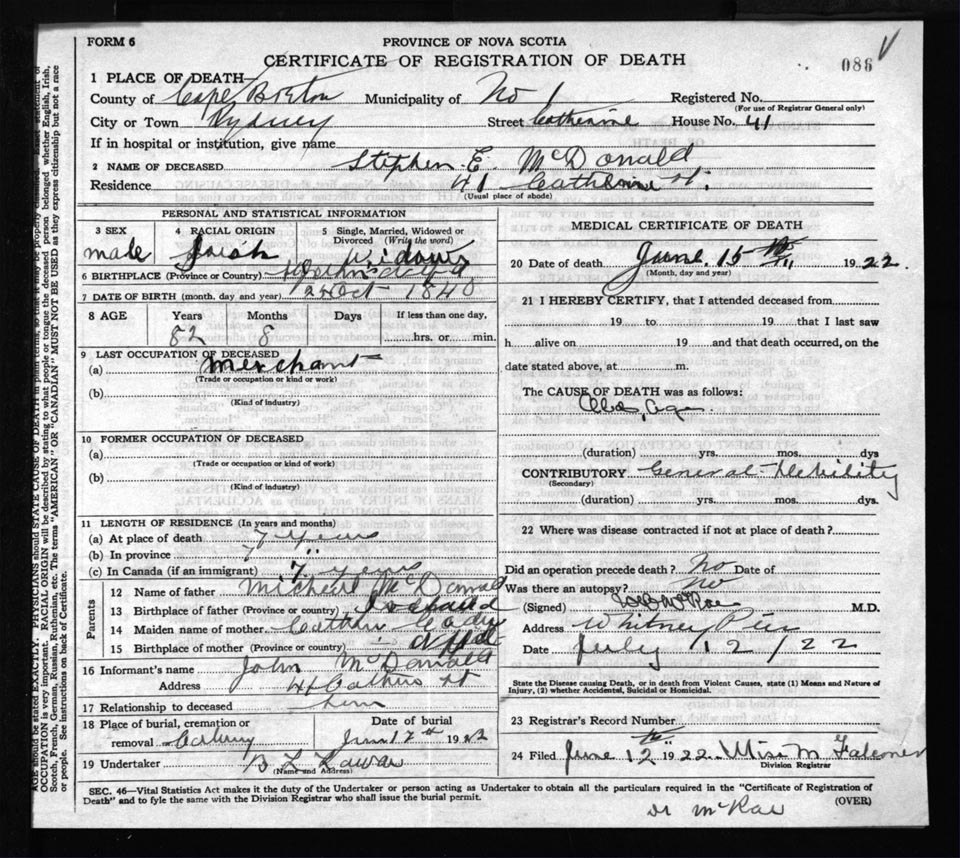 FORM 6
PROVINCE OF NOVA SCOTIA
CERTIFICATE OF REGISTRATION OF DEATH
086
1 PLACE OF DEATH—
County of Cape Breton Municipality of No 1 Registered No.
(For use of Registrar General only)
City or Town Sydney Street Catherine House No. 41
If in hospital or institution, give name
2 NAME OF DECEASED Stephen E. McDonald
Residence 41 Catherine St.
(Usual place of abode)
PERSONAL AND STATISTICAL INFORMATION
3 SEX 4 RACIAL ORIGIN 5 Single, Married, Widowed or Divorced (Write the word)
male
6 BIRTHPLACE (Province or Country)
7 DATE OF BIRTH (month, day and year) Oct 1840
8 AGE Years Months Days If less than one day,
82 8 hrs. or min.
9 LAST OCCUPATION OF DECEASED
(a) Merchant
(Trade or occupation or kind or work)
(b)
(Kind of industry)
10 FORMER OCCUPATION OF DECEASED
(a)
(Trade or occupation or kind or work)
(b)
(Kind of industry)
11 LENGTH OF RESIDENCE (In years and months)
(a) At place of death 7 years
(b) In province 7 "
(c) In Canada (if an immigrant) 7 years
Parents
12 Name of father Micheal McDonald
13 Birthplace of father (Province or country)
14 Maiden name of mother
15 Birthplace of mother (Province or country)
16 Informant's name John McDonald
Address 41 St
17 Relationship to deceased
18 Place of burial, cremation or removal Date of burial
June 17th 1922
19 Undertaker
(Name and Address)
MEDICAL CERTIFICATE OF DEATH
20 Date of death June 15th 1922.
(Month, day and year)
21 I HEREBY CERTIFY, that I attended deceased from
19 to 19 that I last saw
h alive on 19 and that death occurred, on the
date stated above, at m.
The CAUSE OF DEATH was as follows:
(duration) yrs. mos. dys
CONTRIBUTORY General Debility
(Secondary)
(duration) yrs. mos. dys.
22 Where was disease contracted if not at place of death?
Did an operation precede death? No Date of
Was there an autopsy? No
(Signed) McRae M.D.
Address Whitney Pier
Date July 12/22
State the Disease causing Death, or in death from Violent Causes, state (1) Means and Nature of
Injury, (2) whether Accidental, Suicidal or Homicidal.
23 Registrar's Record Number
24 Filed June 12th 1922 Miss M Falconer
Division Registrar
SEC. 46—Vital Statistics Act makes it the duty of the Undertaker or person acting as Undertaker to obtain all the particulars required in the "Certificate of Registration of
Death" and to fyle the same with the Division Registrar who shall issue the burial permit.
(OVER)
Dr McRae
AGE should be stated EXACTLY. PHYSICIANS should STATE CAUSE OF DEATH in plain terms, so that it may be properly classified. Exact statement of
OCCUPATION is very important. RACIAL ORIGIN will be described by stating to what people or tongue the deceased person belonged whether English, Irish,
Scotch, French, German, Russian, Ruthenian, etc. The terms "AMERICAN" OR "CANADIAN" MUST NOT BE USED as they express citizenship but not a race
or people. See instructions on back of Certificate.